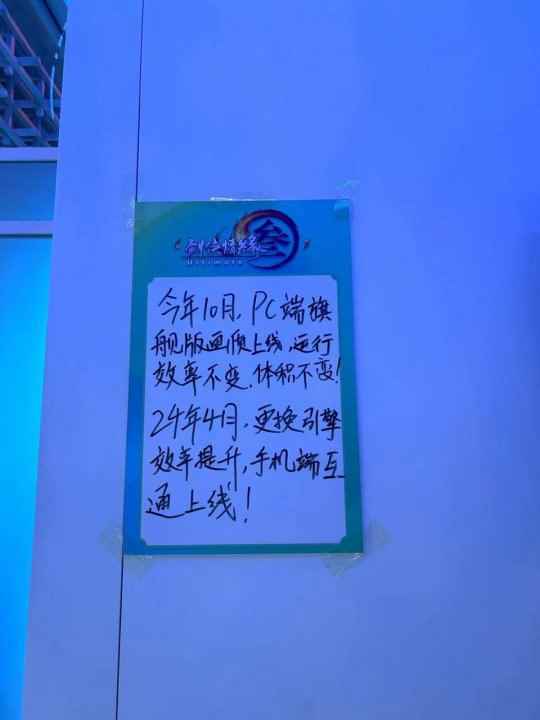 剑侠情缘 叁
Ultimate
今年10月，PC端旗
舰版画质上线，运行
效率不变，体积不变！
24年4月，更换引擎
效率提升，手机端互
通上线！